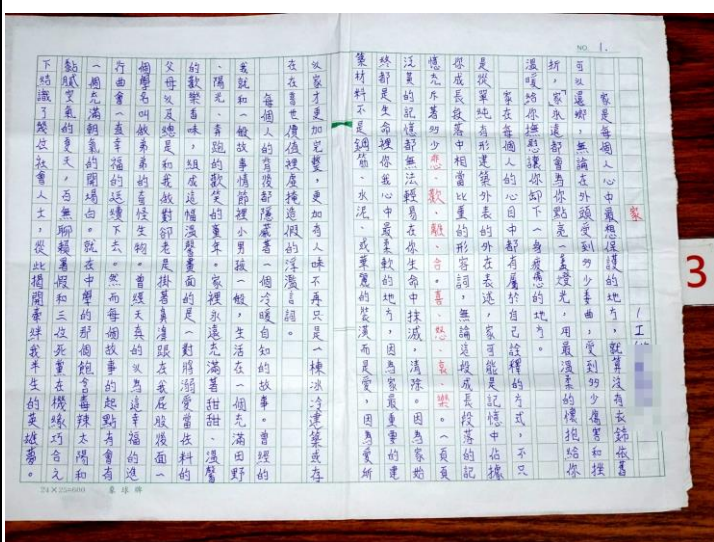 NO. 1.
家
1工
家是每個人心中最想保護的地方，就算沒有去錦依舊
可以還鄉，無論在外頭受到多少委曲，愛到多少傷害和挫
折，「家」永遠都會為你點亮一盞燈光，用最溫柔的懷抱給你
溫暖給你撫慰讓你卸下一身疲憊的地方。
家在每個人的心目中都有屬於自己詮釋的方式，不只
是從單純有形建築外表的外在表述，家可能是記憶中佔據
你成長段落中相當比重的形容詞，無論這般成長段落的記
憶充斥著多少悲、歡、離、合、喜、怒、哀、樂。一頁頁
泛黃的記憶都無法輕易在你生命中抹滅，清除。因為家始
終都是生命裡你我心中最柔軟的地方，因為家最重要的建
築材料不是鋼筋、水泥、或華麗的裝潢而是愛，因為愛所
以家才更加完整，更加有人味不再只是一棟冰冷建築或存
在在言世價值裡虛掩造假的浮濫言詞。
每個人的背後都隱藏著一個冷暖自知的故事。曾經的
我就和一般故事情節裡小男孩一般，生活在一個充滿田野
、陽光、奔跑的歡笑的童年。家裡永遠充滿著甜甜、溫馨
的歡樂香味，組成這幅溫馨畫面的是一對將溺愛當佐料的
父母以及總是和我做對卻老是掛著鼻涕跟在我屁股後面一
個學名叫做弟弟的奇怪生物。曾經天真的以為這幸福的進
行曲會一直幸福的延續下去。然而每個故事的起點有會有
一個充滿朝氣的開場白。就在中學的那個飽含毒辣太陽和
黏膩空氣的夏天，百無聊賴暑假和三位死黨在機緣巧合之
下結識了幾位社會人士，從此揭開牽絆我半生的英雄夢。
24×25=600
3